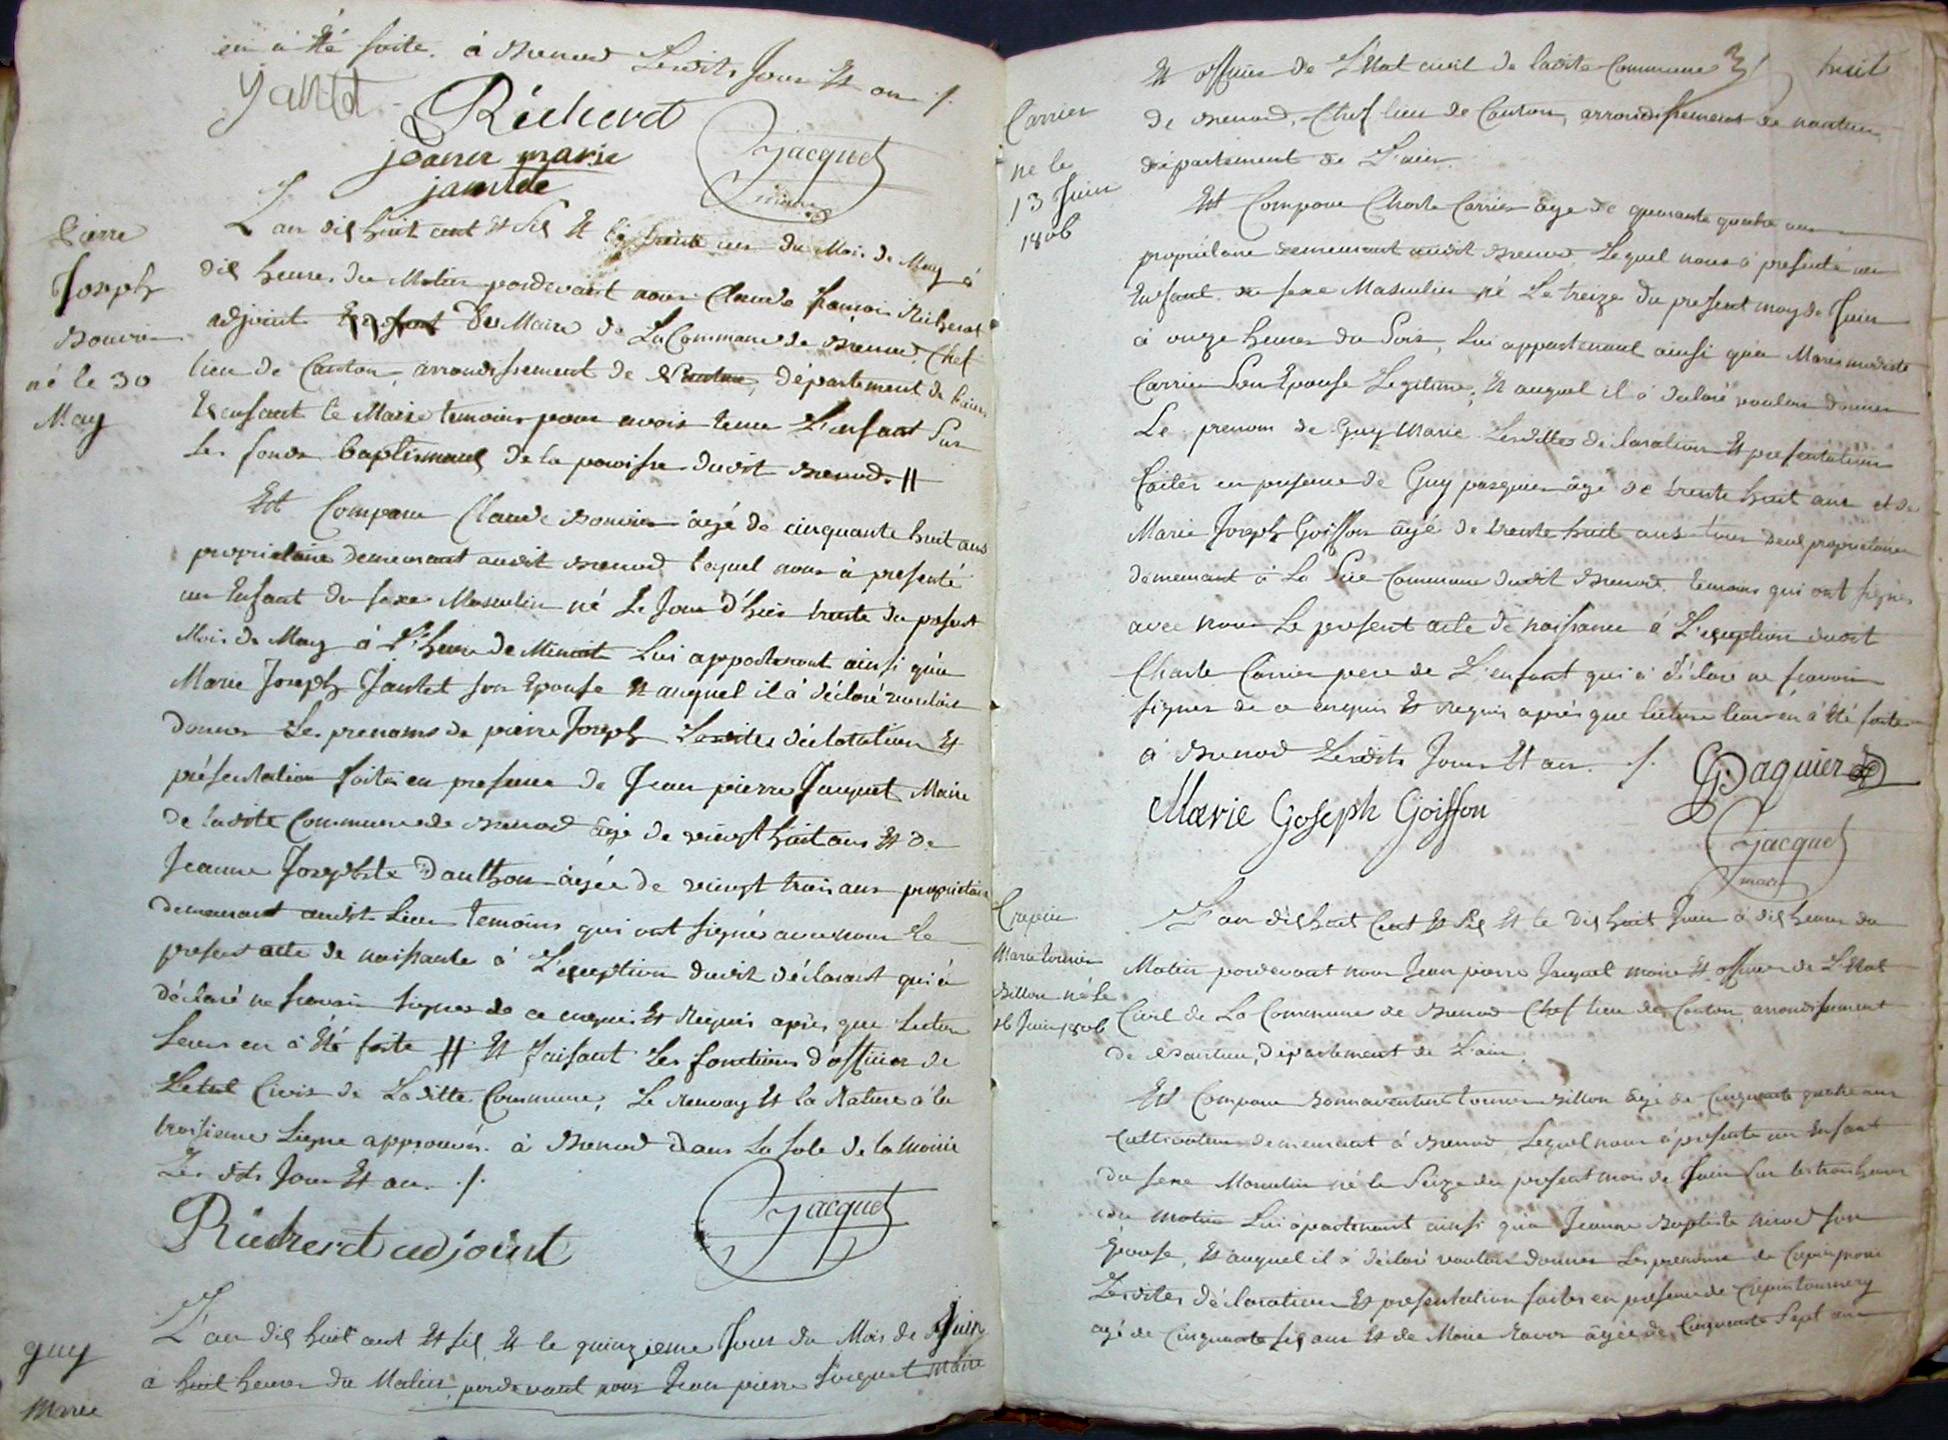 en a été faite. à Brenod Lesdits Jour Et an ./.
Jantet Richerd
jeanne marie Jacquet
jantete maire
Pierre
Joseph
Bouvier
né le 30
May
L'an dix huit cent Et six Et le trente un du Mois de May à
dix heures du Matin pardevant nous Claude françois Richerd
adjoint du Maire de La Commune de Brenod, Chef
lieu de Canton, arrondissement de Nantua, département de L'ain
le Maire temoin pour avoir tenu L'enfant Sur
Les fonds baptismaux de la paroisse dudit Brenod. //
Est Comparu Claude Bouvier âgé de cinquante huit ans
proprietaire demeurant audit Brenod lequel nous à presenté
un Enfant du sexe Masculin né Le Jour d'hier trente du present
Mois de May à L'heure de Minuit Lui appartenant ainsi qu'a
Marie Joseph Jantet son Epouse Et auquel il à déclaré vouloir
donner Les prenoms de pierre Joseph Lesdites déclaration Et
présentation faites en presence de Jean pierre Jacquet Maire
de ladite Commune de Brenod âgé de vingt huit ans Et de
Jeanne Josephte Danthon âgée de vingt trois ans proprietaire
demeurant audit Lieu temoins qui ont signé avec nous Le
present acte de naissance à L'exeption dudit déclarant qui à
déclaré ne scavoir signer de ce enquis Et Requis après que Lecture
Leur en à Eté faite // Et faisant Les fonctions d'officier de
Letat Civil de Laditte Commune, Le Renvoy Et la Rature à la
troisieme Ligne approuvés. à Brenod dans La Sale de la Mairie
Les dits Jour Et an. ./.
Richerd adjoint Jacquet
guy
Marie
L'an dix huit cent Et six, Et le quinzieme Jour du Mois de Juin
à huit heures du Matin, pardevant nous Jean pierre Jacquet Maire
huit
Et officier de L'Etat civil de ladite Commune
de Brenod, Chef lieu de Canton, arrondissement de nantua,
département de L'ain.
Carrier
né le
13 Juin
1806
Est Comparu Charle Carrier âgé de quarante quatre ans
proprietaire demeurant audit Brenod Lequel nous à presenté un
Enfant du sexe Masculin né Le treize du present moy de Juin
à onze heures du Soir, Lui appartenant ainsi qu'a Marie modeste
Carrier Son Epouse Legitime, Et auquel il à declaré vouloir donner
Le prenom de Guy Marie Lesdittes déclaration Et presentation
faites en presence de Guy pasquier âgé de trente huit ans et de
Marie Joseph Goiffon âgé de trente huit ans tous deux proprietaires
demeurant à La Commune dudit Brenod temoins qui ont signés
avec nous Le present acte de naissance à L'exeption dudit
Charle Carrier pere de L'enfant qui à déclaré ne scavoir
signer de ce enquis Et Requis après que lecture leur en à Eté faite
à Brenod Lesdits Jour Et an. ./. GPaquier
Marie Goseph Goiffon
Jacquet
maire
Crepin
Marie tournier
Billon né le
16 Juin 1806
L'an dix huit Cent Et Six Et le dix huit Juin à dix heures du
Matin pardevant nous Jean pierre Jacquet maire Et officier de L'Etat
Civil de La Commune de Brenod Chef lieu de Canton, arrondissement
de Nantua, département de L'ain.
Est Comparu Bonnaventure tournier Billon âgé de Cinquante quatre ans
Cultivateur demeurant à Brenod Lequel nous à presenté un Enfant
du sexe Masculin né le Seize du present mois de Juin Sur les trois heures
du matin Lui apartenant ainsi qu'a Jeanne Baptiste son
Epouse, Et auquel il à déclaré vouloir donner Les prenoms de Crepin
Lesdites déclaration Et presentation faites en presence de Crepin
agé de Cinquante six ans Et de Marie Ravier âgée de Cinquante Sept ans